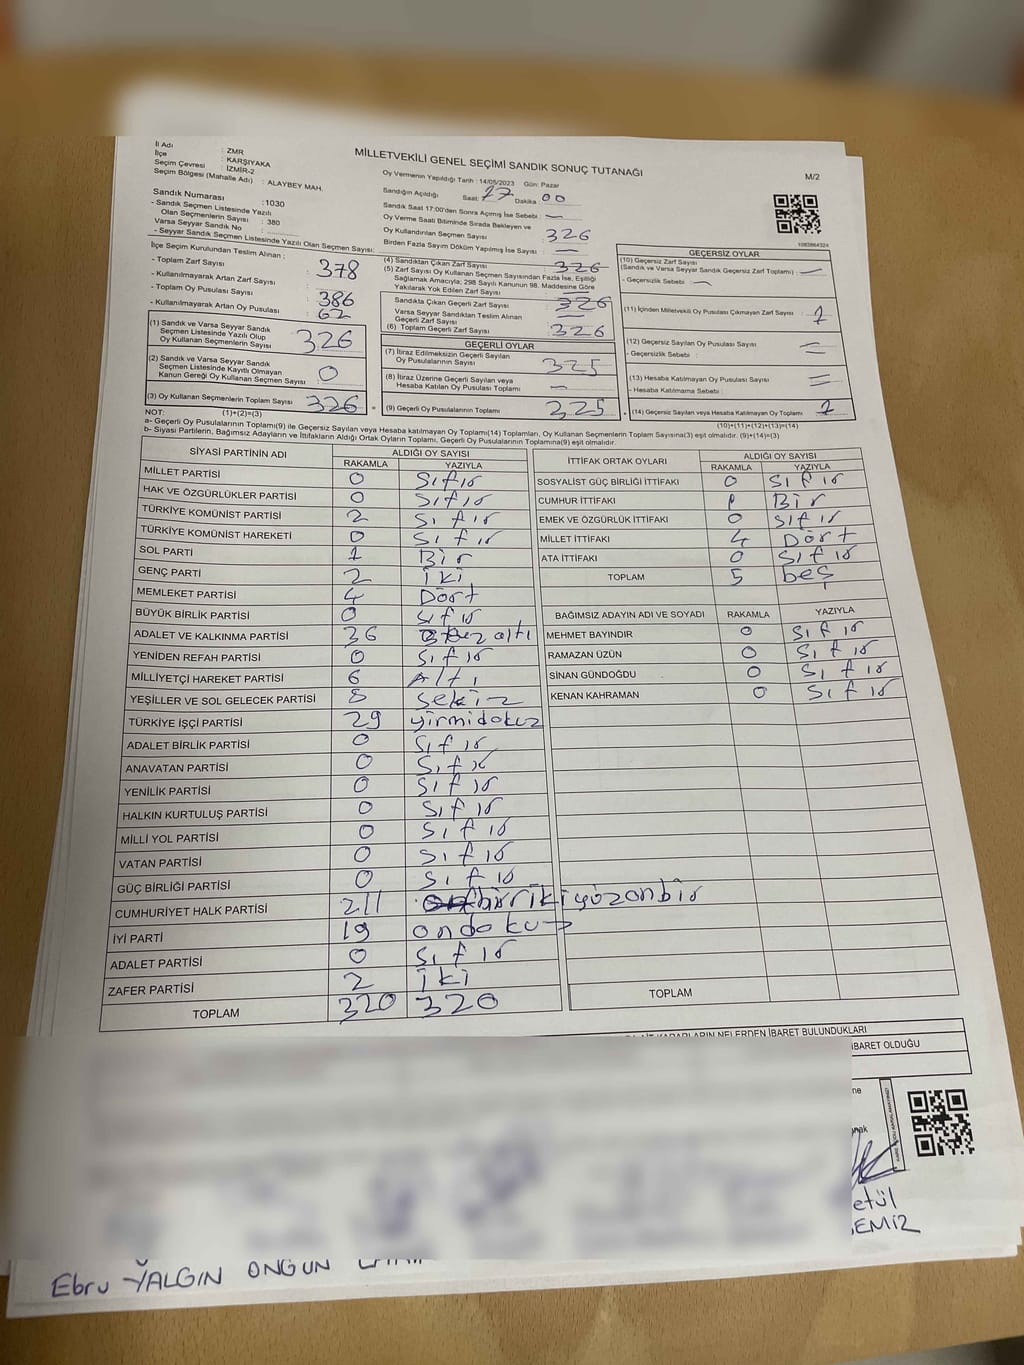 MİLLETVEKİLİ GENEL SEÇİMİ SANDIK SONUÇ TUTANAĞI
M/2
İl Adı : ZMR
İlçe : KARŞIYAKA
Seçim Çevresi : İZMİR-2
Seçim Bölgesi (Mahalle Adı) : ALAYBEY MAH.
Sandık Numarası : 1030
- Sandık Seçmen Listesinde Yazılı
Olan Seçmenlerin Sayısı : 380
Varsa Seyyar Sandık No :
- Seyyar Sandık Seçmen Listesinde Yazılı Olan Seçmen Sayısı:
Oy Vermenin Yapıldığı Tarih : 14/05/2023 Gün: Pazar
Sandığın Açıldığı Saat: 17 Dakika 00
Sandık Saat 17:00'den Sonra Açılmış İse Sebebi : —
Oy Verme Saati Bitiminde Sırada Bekleyen ve
Oy Kullandırılan Seçmen Sayısı : 326
Birden Fazla Sayım Döküm Yapılmış İse Sayısı : —
1083864324
İlçe Seçim Kurulundan Teslim Alınan ;
- Toplam Zarf Sayısı : 378
- Kullanılmayarak Artan Zarf Sayısı :
- Toplam Oy Pusulası Sayısı : 386
- Kullanılmayarak Artan Oy Pusulası : 62
(1) Sandık ve Varsa Seyyar Sandık
Seçmen Listesinde Yazılı Olup
Oy Kullanan Seçmenlerin Sayısı : 326
(2) Sandık ve Varsa Seyyar Sandık
Seçmen Listesinde Kayıtlı Olmayan
Kanun Gereği Oy Kullanan Seçmen Sayısı : 0
(3) Oy Kullanan Seçmenlerin Toplam Sayısı : 326
(1)+(2)=(3)
(4) Sandıktan Çıkan Zarf Sayısı : 326
(5) Zarf Sayısı Oy Kullanan Seçmen Sayısından Fazla İse, Eşitliği
Sağlamak Amacıyla; 298 Sayılı Kanunun 98. Maddesine Göre
Yakılarak Yok Edilen Zarf Sayısı : —
Sandıkta Çıkan Geçerli Zarf Sayısı : 326
Varsa Seyyar Sandıktan Teslim Alınan
Geçerli Zarf Sayısı : —
(6) Toplam Geçerli Zarf Sayısı : 326
GEÇERLİ OYLAR
(7) İtiraz Edilmeksizin Geçerli Sayılan
Oy Pusulalarının Sayısı : 325
(8) İtiraz Üzerine Geçerli Sayılan veya
Hesaba Katılan Oy Pusulası Toplamı : —
(9) Geçerli Oy Pusulalarının Toplamı : 325
GEÇERSİZ OYLAR
(10) Geçersiz Zarf Sayısı
(Sandık ve Varsa Seyyar Sandık Geçersiz Zarf Toplamı) : —
- Geçersizlik Sebebi : —
(11) İçinden Milletvekili Oy Pusulası Çıkmayan Zarf Sayısı : 1
(12) Geçersiz Sayılan Oy Pusulası Sayısı : —
- Geçersizlik Sebebi : —
(13) Hesaba Katılmayan Oy Pusulası Sayısı : —
- Hesaba Katılmama Sebebi : —
(14) Geçersiz Sayılan veya Hesaba Katılmayan Oy Toplamı : 1
(10)+(11)+(12)+(13)=(14)
NOT:
a- Geçerli Oy Pusulalarının Toplamı(9) ile Geçersiz Sayılan veya Hesaba Katılmayan Oy(14) Toplamları, Oy Kullanan Seçmenlerin Toplam Sayısına(3) eşit olmalıdır. (9)+(14)=(3)
b- Siyasi Partilerin, Bağımsız Adayların ve İttifakların Aldığı Ortak Oyların Toplamı, Geçerli Oy Pusulalarının Toplamına(9) eşit olmalıdır.
SİYASİ PARTİNİN ADI ALDIĞI OY SAYISI
RAKAMLA YAZIYLA
MİLLET PARTİSİ 0 sıfır
HAK VE ÖZGÜRLÜKLER PARTİSİ 0 sıfır
TÜRKİYE KOMÜNİST PARTİSİ 2 sıfır
TÜRKİYE KOMÜNİST HAREKETİ 0 sıfır
SOL PARTİ 1 Bir
GENÇ PARTİ 2 iki
MEMLEKET PARTİSİ 4 Dört
BÜYÜK BİRLİK PARTİSİ 0 sıfır
ADALET VE KALKINMA PARTİSİ 36 altı
YENİDEN REFAH PARTİSİ 0 sıfır
MİLLİYETÇİ HAREKET PARTİSİ 6 Altı
YEŞİLLER VE SOL GELECEK PARTİSİ 8 Sekiz
TÜRKİYE İŞÇİ PARTİSİ 29 yirmidokuz
ADALET BİRLİK PARTİSİ 0 sıfır
ANAVATAN PARTİSİ 0 sıfır
YENİLİK PARTİSİ 0 sıfır
HALKIN KURTULUŞ PARTİSİ 0 sıfır
MİLLİ YOL PARTİSİ 0 sıfır
VATAN PARTİSİ 0 sıfır
GÜÇ BİRLİĞİ PARTİSİ 0 sıfır
CUMHURİYET HALK PARTİSİ 211 ikiyüzonbir
İYİ PARTİ 19 ondoku
ADALET PARTİSİ 0 sıfır
ZAFER PARTİSİ 2 iki
TOPLAM 320 320
İTTİFAK ORTAK OYLARI ALDIĞI OY SAYISI
RAKAMLA YAZIYLA
SOSYALİST GÜÇ BİRLİĞİ İTTİFAKI 0 sıfır
CUMHUR İTTİFAKI 1 Bir
EMEK VE ÖZGÜRLÜK İTTİFAKI 0 sıfır
MİLLET İTTİFAKI 4 Dört
ATA İTTİFAKI 0 sıfır
TOPLAM 5 beş
BAĞIMSIZ ADAYIN ADI VE SOYADI RAKAMLA YAZIYLA
MEHMET BAYINDIR 0 sıfır
RAMAZAN ÜZÜN 0 sıfır
SİNAN GÜNDOĞDU 0 sıfır
KENAN KAHRAMAN 0 sıfır
TOPLAM
KARARLARIN NELERDEN İBARET BULUNDUKLARI
İBARET OLDUĞU
etül
EMİZ
Ebru YALGIN ONGUN